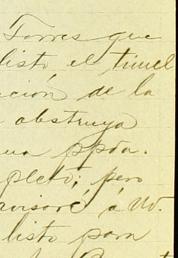 Torres que
listo el tunel
ción de la
obstruya
una ppda.
pleto; pero
avisaré á Ud.
listo para